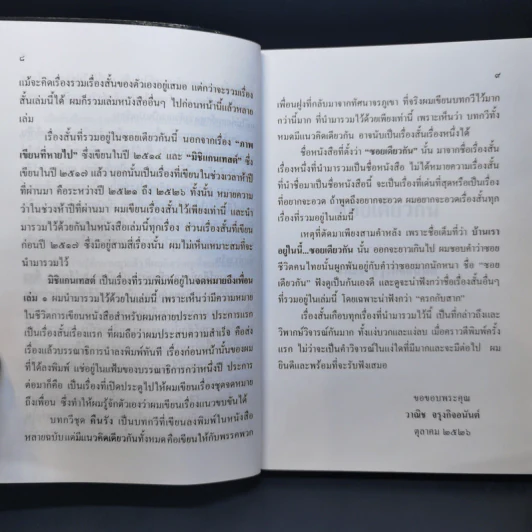 ๘
แม้จะคิดเรื่องรวมเรื่องสั้นของตัวเองอยู่เสมอ แต่กว่าจะรวมเรื่อง
สั้นเล่มนี้ได้ ผมก็รวมเล่มหนังสืออื่นๆ ไปก่อนหน้านี้แล้วหลาย
เล่ม
เรื่องสั้นที่รวมอยู่ในซอยเดียวกันนี้ นอกจากเรื่อง “ภาพ
เขียนที่หายไป” ซึ่งเขียนในปี ๒๕๑๔ และ “มิชิแกนเทสต์” ซึ่ง
เขียนในปี ๒๕๑๗ แล้ว นอกนั้นเป็นเรื่องที่เขียนในช่วงเวลาห้าปี
ที่ผ่านมา คือระหว่างปี ๒๕๒๑ ถึง ๒๕๒๖ ทั้งนั้น หมายความ
ว่าในช่วงห้าปีที่ผ่านมา ผมเขียนเรื่องสั้นไว้เพียงเท่านี้ และนำ
มารวมไว้ด้วยกันในหนังสือเล่มนี้ทุกเรื่อง ส่วนเรื่องสั้นที่เขียน
ก่อนปี ๒๕๑๗ ซึ่งมีอยู่สามสี่เรื่องนั้น ผมไม่เห็นเหมาะสมที่จะ
นำมารวมไว้
มิชิแกนเทสต์ เป็นเรื่องที่รวมพิมพ์อยู่ในจดหมายถึงเพื่อน
เล่ม ๑ ผมนำมารวมไว้ด้วยในเล่มนี้ เพราะเห็นว่ามีความหมาย
ในชีวิตการเขียนหนังสือสำหรับผมหลายประการ ประการแรก
เป็นเรื่องสั้นเรื่องแรก ที่ผมถือว่าผมประสบความสำเร็จ คือส่ง
เรื่องแล้วบรรณาธิการนำลงพิมพ์ทันที เรื่องก่อนหน้านั้นของผม
ที่ได้ลงพิมพ์ แช่อยู่ในแฟ้มของบรรณาธิการกว่าหนึ่งปี ประการ
ต่อมาก็คือ เป็นเรื่องที่เปิดประตูไปให้ผมเขียนเรื่องชุดจดหมาย
ถึงเพื่อน ซึ่งทำให้ผมรู้จักตัวเองว่าผมเขียนเรื่องแนวขบขันได้
บทกวีชุด คืนรัง เป็นบทกวีที่เขียนลงพิมพ์ในหนังสือ
หลายฉบับ แต่มีแนวคิดเดียวกันทั้งหมดคือเขียนให้กับพรรคพวก
๙
เพื่อนฝูงที่กลับมาจากทัศนาจรภูเขา ที่จริงผมเขียนบทกวีไว้มาก
กว่านี้มาก ที่นำมารวมไว้ด้วยเพียงเท่านี้ เพราะเห็นว่า บทกวีทั้ง
หมดมีแนวคิดเดียวกัน อาจนับเป็นเรื่องสั้นเรื่องหนึ่งได้
ชื่อหนังสือที่ตั้งว่า “ซอยเดียวกัน” นั้น มาจากชื่อเรื่องสั้น
เรื่องหนึ่งที่นำมารวมเป็นชื่อหนังสือ ไม่ได้หมายความเรื่องสั้น
ที่นำชื่อมาเป็นชื่อหนังสือนี้ จะเป็นเรื่องที่เด่นที่สุดหรือเป็นเรื่อง
ที่อยากจะอวด ถ้าพูดถึงอยากจะอวด ผมอยากจะอวดเรื่องสั้นทุก
เรื่องที่รวมอยู่ในเล่มนี้
เหตุที่ตัดมาเพียงสามคำหลัง เพราะชื่อเต็มที่ว่า บ้านเรา
อยู่ในนี้...ซอยเดียวกัน นั้น ออกจะยาวเกินไป ผมชอบคำว่าซอย
ชีวิตคนไทยนั้นผูกพันอยู่กับคำว่าซอยมากนักหนา ชื่อ “ซอย
เดียวกัน” ฟังดูเป็นกันเองดี และดูจะน่าฟังกว่าชื่อเรื่องสั้นอื่นๆ
ที่รวมอยู่ในเล่มนี้ โดยเฉพาะน่าฟังกว่า “ครกกับสาก”
เรื่องสั้นเกือบทุกเรื่องที่นำมารวมไว้นี้ เป็นที่กล่าวถึงและ
วิพากษ์วิจารณ์กันมาก ทั้งแง่บวกและแง่ลบ เมื่อคราวตีพิมพ์ครั้ง
แรก ไม่ว่าจะเป็นคำวิจารณ์ในแง่ใดที่มีมากและจะมีต่อไป ผม
ยินดีและพร้อมที่จะรับฟังเสมอ
ขอขอบพระคุณ
วาณิช จรุงกิจอนันต์
ตุลาคม ๒๕๒๖